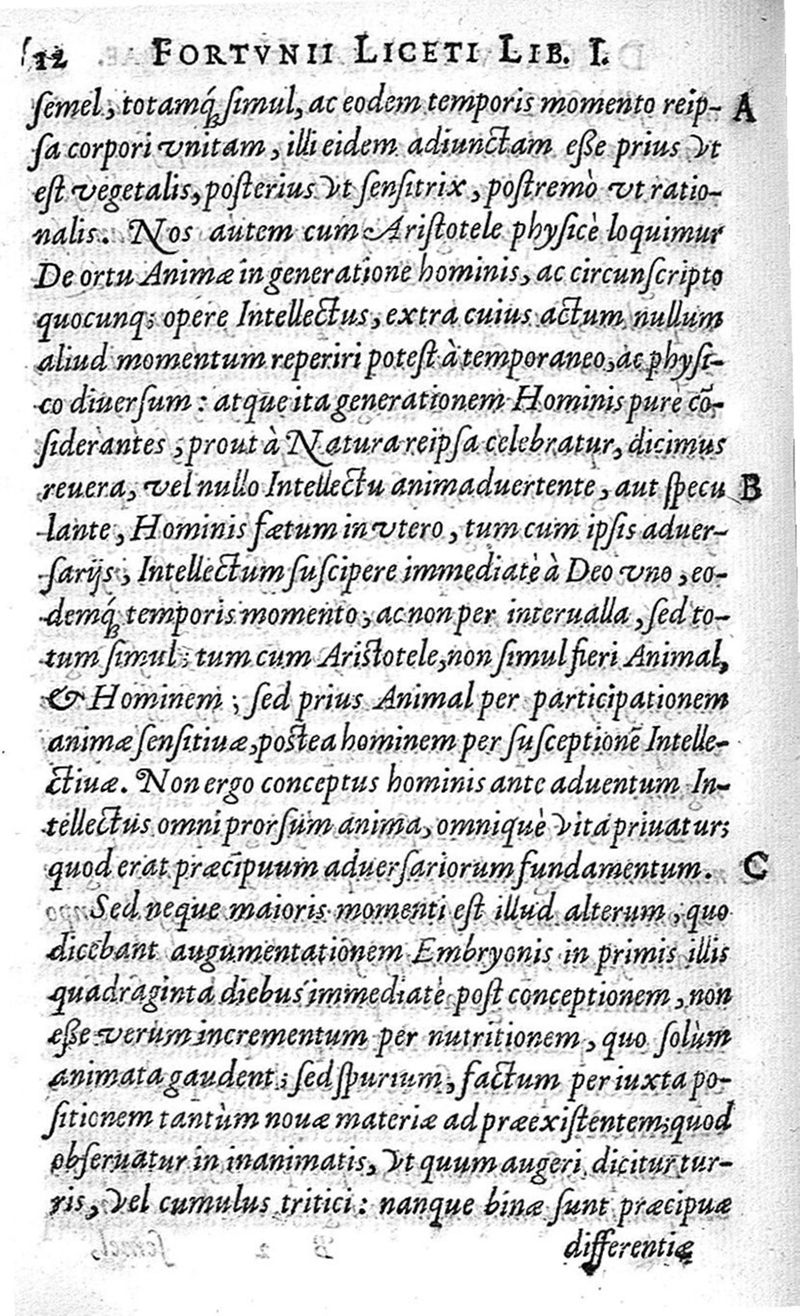 12 FORTVNII LICETI LIB. I.
semel, totamq́; simul, ac eodem temporis momento reip- A
sa corpori vnitam, illi eidem adiunctam esse prius vt
est vegetalis, posterius vt sensitrix, postremò vt ratio-
nalis. Nos autem cum Aristotele physicè loquimur
De ortu Animæ in generatione hominis, ac circunscripto
quocunq; opere Intellectus, extra cuius actum nullum
aliud momentum reperiri potest à temporaneo, ac physi-
co diuersum: atque ita generationem Hominis purè cō-
siderantes, prout à Natura reipsa celebratur, dicimus
reuera, vel nullo Intellectu animaduertente, aut specu B
lante, Hominis fætum in vtero, tum cum ipsis aduer-
sarijs, Intellectum suscipere immediatè à Deo vno, eo-
demq́; temporis momento, ac non per interualla, sed to-
tum simul; tum cum Aristotele, non simul fieri Animal,
& Hominem; sed prius Animal per participationem
animæ sensitiuæ, postea hominem per susceptionē Intelle-
ctiuæ. Non ergo conceptus hominis ante aduentum In-
tellectus omni prorsum anima, omniquè vita priuatur;
quod erat præcipuum aduersariorum fundamentum. C
Sed neque maioris momenti est illud alterum, quo
dicebant augumentationem Embryonis in primis illis
quadraginta diebus immediatè post conceptionem, non
esse verum incrementum per nutritionem, quo solùm
animata gaudent; sed spurium, factum per iuxta po-
sitionem tantùm nouæ materiæ ad præexistentem; quod
obseruatur in inanimatis, vt quum augeri dicitur tur-
ris, vel cumulus tritici: nanque binæ sunt præcipuæ
differentiæ